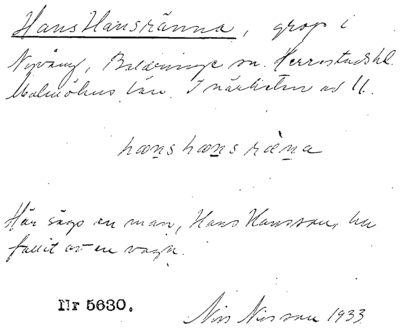 Hans Hansränna, grop i
Nyvång, Baldringe sn. Herrestads hd.
Malmöhus län. I närheten av 11.
hans hans räna
Här sägs en man, Hans Hansson, ha
fallit av en vagn.
Nr 5630.
Nils Nilsson 1933